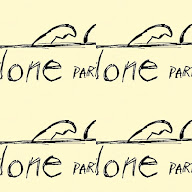 lone PAR lone PAR
lone PAR lone PAR